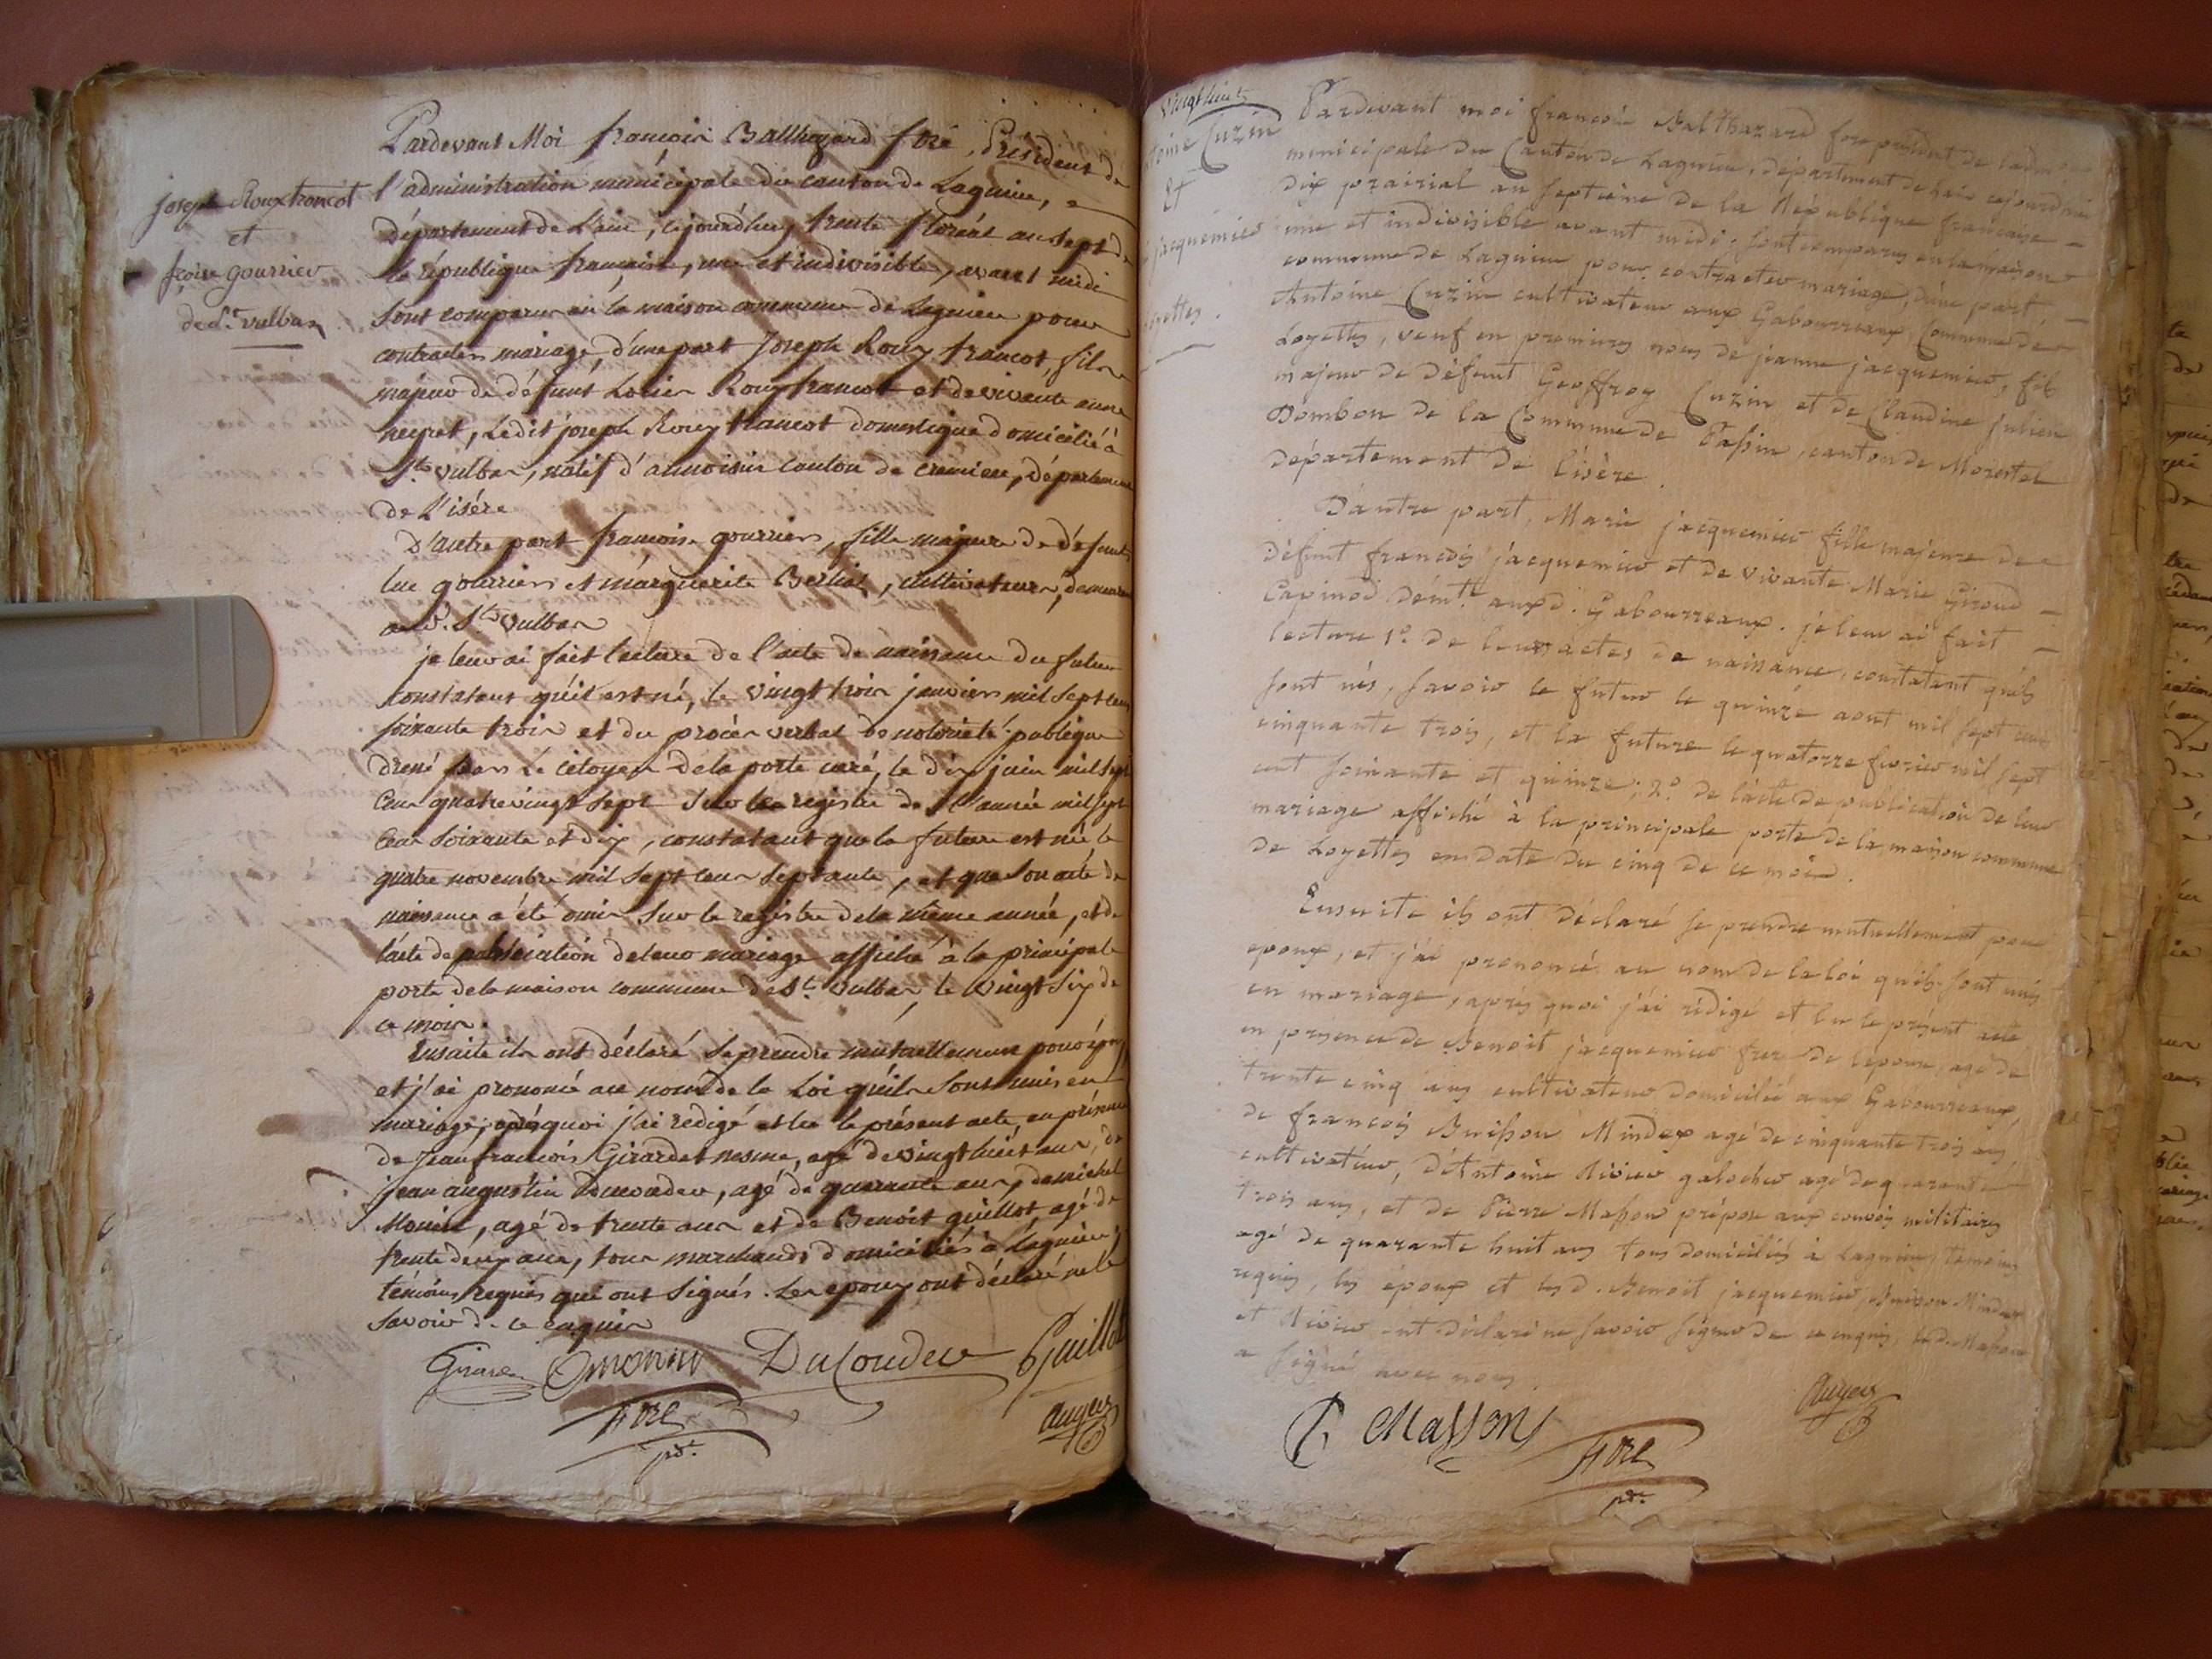 joseph Roux francot
et
fçoise gourrier
de St. vulbas
Pardevant Moi françois Balthazard fore, Président de
l'administration municipale du canton de Lagnieu,
département de L'ain, cejourd'huy trente floréal an sept de
la république française, une et indivisible, avant midi
sont comparus en la maison commune de Lagnieu pour
contracter mariage, d'une part Joseph Roux francot, fils
majeur de défunt Louis Roux francot et de vivante anne
neyret, Ledit joseph Roux francot domestique domicilié à
St. vulbas, natif d'annoisin canton de cremieu, département
de L'isére
D'autre part françoise gourrier, fille majeure de défunts
luc gourrier et marguerite Berliat, cultivateurs, demeurant
au d. St. vulbas
je leur ai fait lecture de l'acte de naissance du futur
constatant qu'il est né, le vingt trois janvier mil sept cent
soixante trois et du procès verbal de notorieté publique
dressé par le citoyen delaporte curé, le dix juin mil sept
cent quatrevingt sept sur le registre de l'année mil sept
cent soixante et dix, constatant que la future est née le
quatre novembre mil sept cent septante, et que son acte de
naissance a été omis sur le registre de la même année, et de
l'acte de publication de leur mariage affiché à la principale
porte de la maison commune de St. vulbas le vingt six de
ce mois.
Ensuite ils ont déclaré se prendre mutuellement pour époux
et j'ai prononcé au nom de la Loi qu'ils sont unis en
mariage; après quoi j'ai redigé et lu le présent acte, en présence
de Jean françois Girardet nesme, agé de vingt huit ans, de
jean augustin Ducoudev, agé de quarante ans, de michel
Monin, agé de trente ans et de Benoit guillot, agé de
trente deux ans, tous marchands domiciliés à Lagnieu
témoins requis qui ont signés. Les epoux ont déclaré ne le
savoir de ce enquis
Girard Monin DuCoudev Guillot
fore
pdt.
Auger
vingt huit
toine Cuzin
Et
jacquemier
yettes.
Pardevant moi francois Balthazard fore président de l'adm
municipale du Canton de Lagnieu, département de Lain cejourdhui
dix prairial an septieme de la République francaise
une et indivisible avant midi, sont comparus en la maison
commune de Lagnieu pour contracter mariage, d'une part,
Antoine Cuzin cultivateur aux Gabourreaux, Commune de
Loyettes, veuf en premieres noces de jeanne jacquemier, fils
majeur de défunt Geoffroy Cuzin et de Claudine Julien
Dombon de la Commune de Passin, canton de Morestel
département de l'isère.
D'autre part, Marie jacquemier fille majeure de
défunt francois jacquemier et de vivante Marie Giroud
Capinod demt. aux d. Gabourreaux. je leur ai fait
lecture 1o. de leurs actes de naissance, constatant qu'ils
sont nés, savoir le futur le quinze aout mil sept cent
cinquante trois, et la future le quatorze fevrier mil sept
cent soixante et quinze; 2o. de l'acte de publication de leur
mariage affiché à la principale porte de la maison commune
de Loyettes en date du cinq de ce mois.
Ensuite ils ont déclaré se prendre mutuellement pour
epoux, et j'ai prononcé au nom de la loi qu'ils sont unis
en mariage, aprés quoi j'ai rédigé et lu le présent acte
en présence de Benoit jacquemier frere de lepouse, agé de
trente cinq ans cultivateur domicilié aux Gabourreaux,
de francois Buisson Mindex agé de cinquante trois ans
cultivateur, d'Antoine Rivier galocher agé de quarante
trois ans, et de Pierre Masson préposé aux convois militaires
agé de quarante huit ans tous domiciliés à Lagnieu témoins
requis, les époux et les d. Benoit jacquemier, Buisson Mindex
et Rivier ont déclaré ne savoir signer de ce enquis, le d. Masson
a signé avec nous.
P. Masson
fore
pdt.
Auger